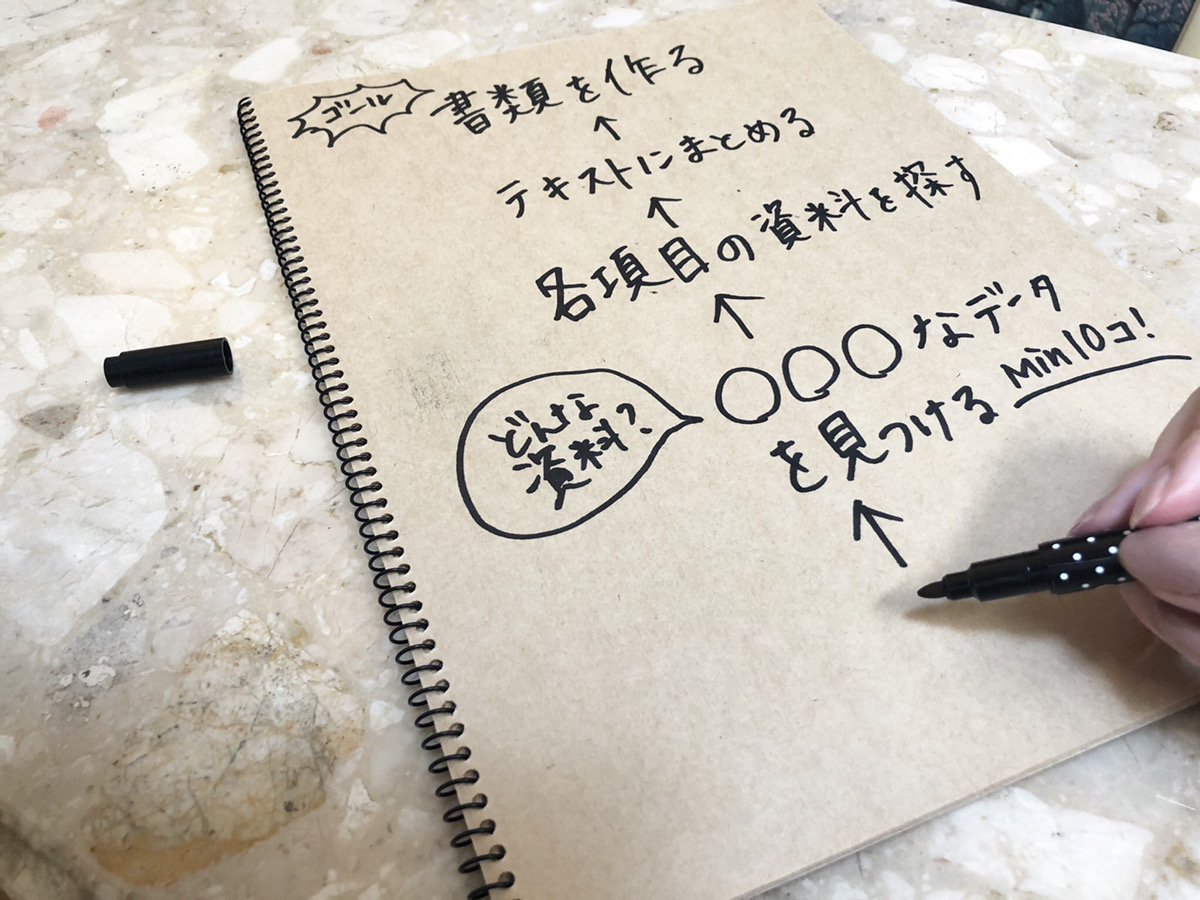 ゴール 書類を作る
↑
テキストにまとめる
↑
各項目の資料を探す
↑
○○○なデータ
どんな
資料?
を見つける Min10コ!
↑